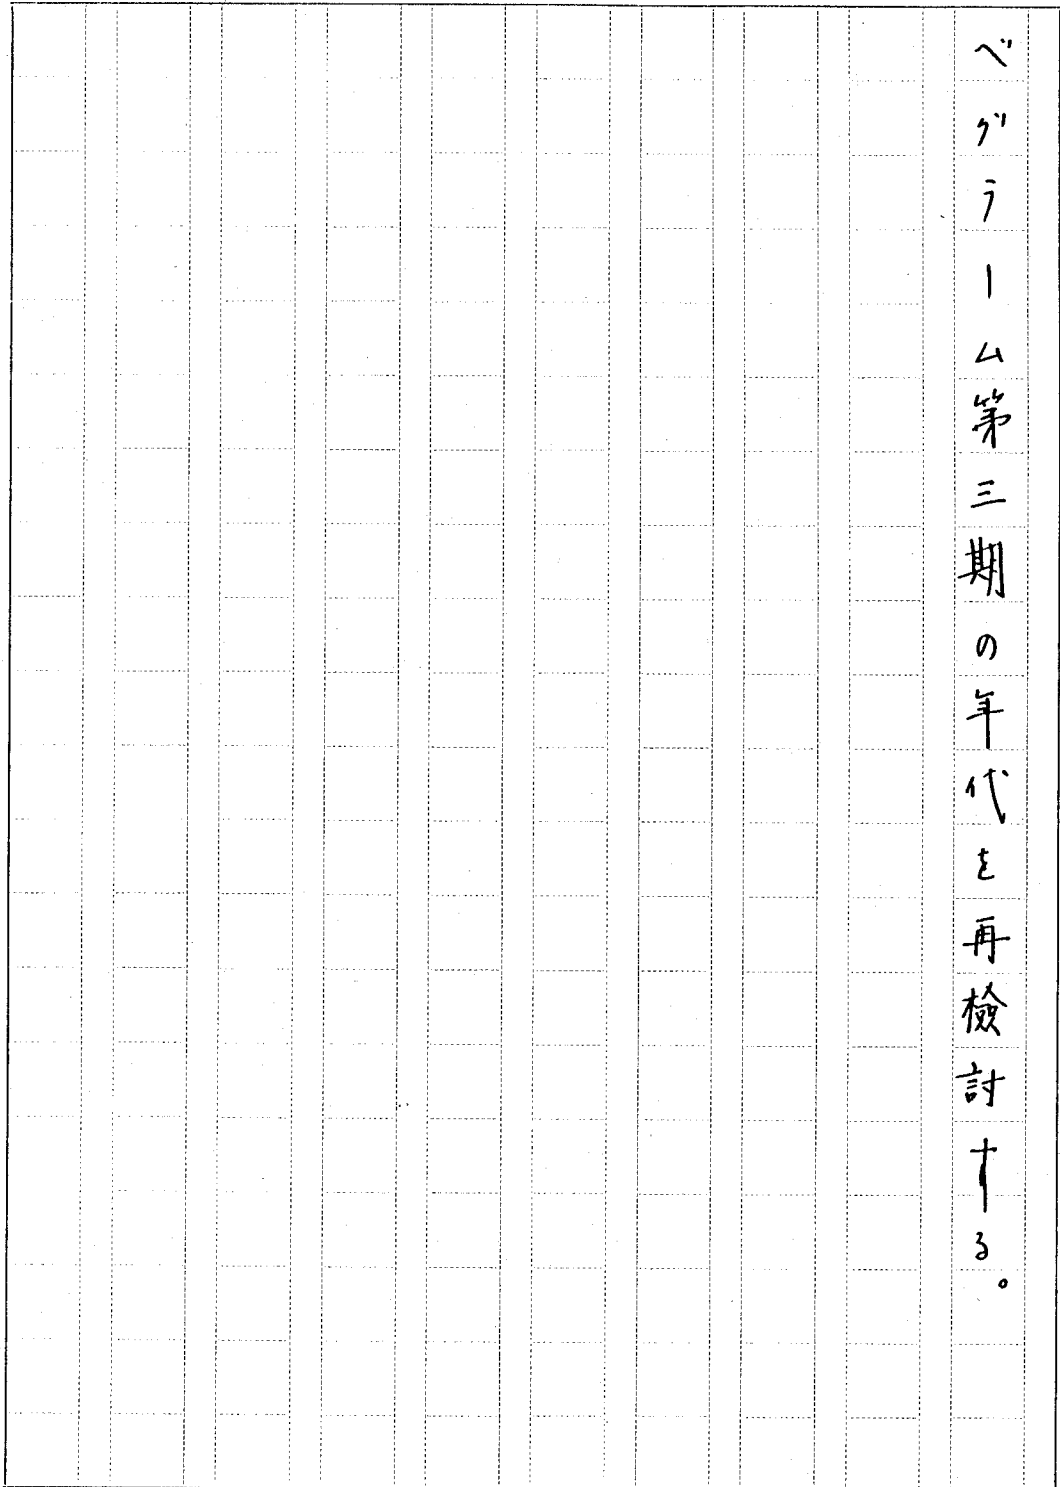 ベグラーム第三期の年代を再検討する。